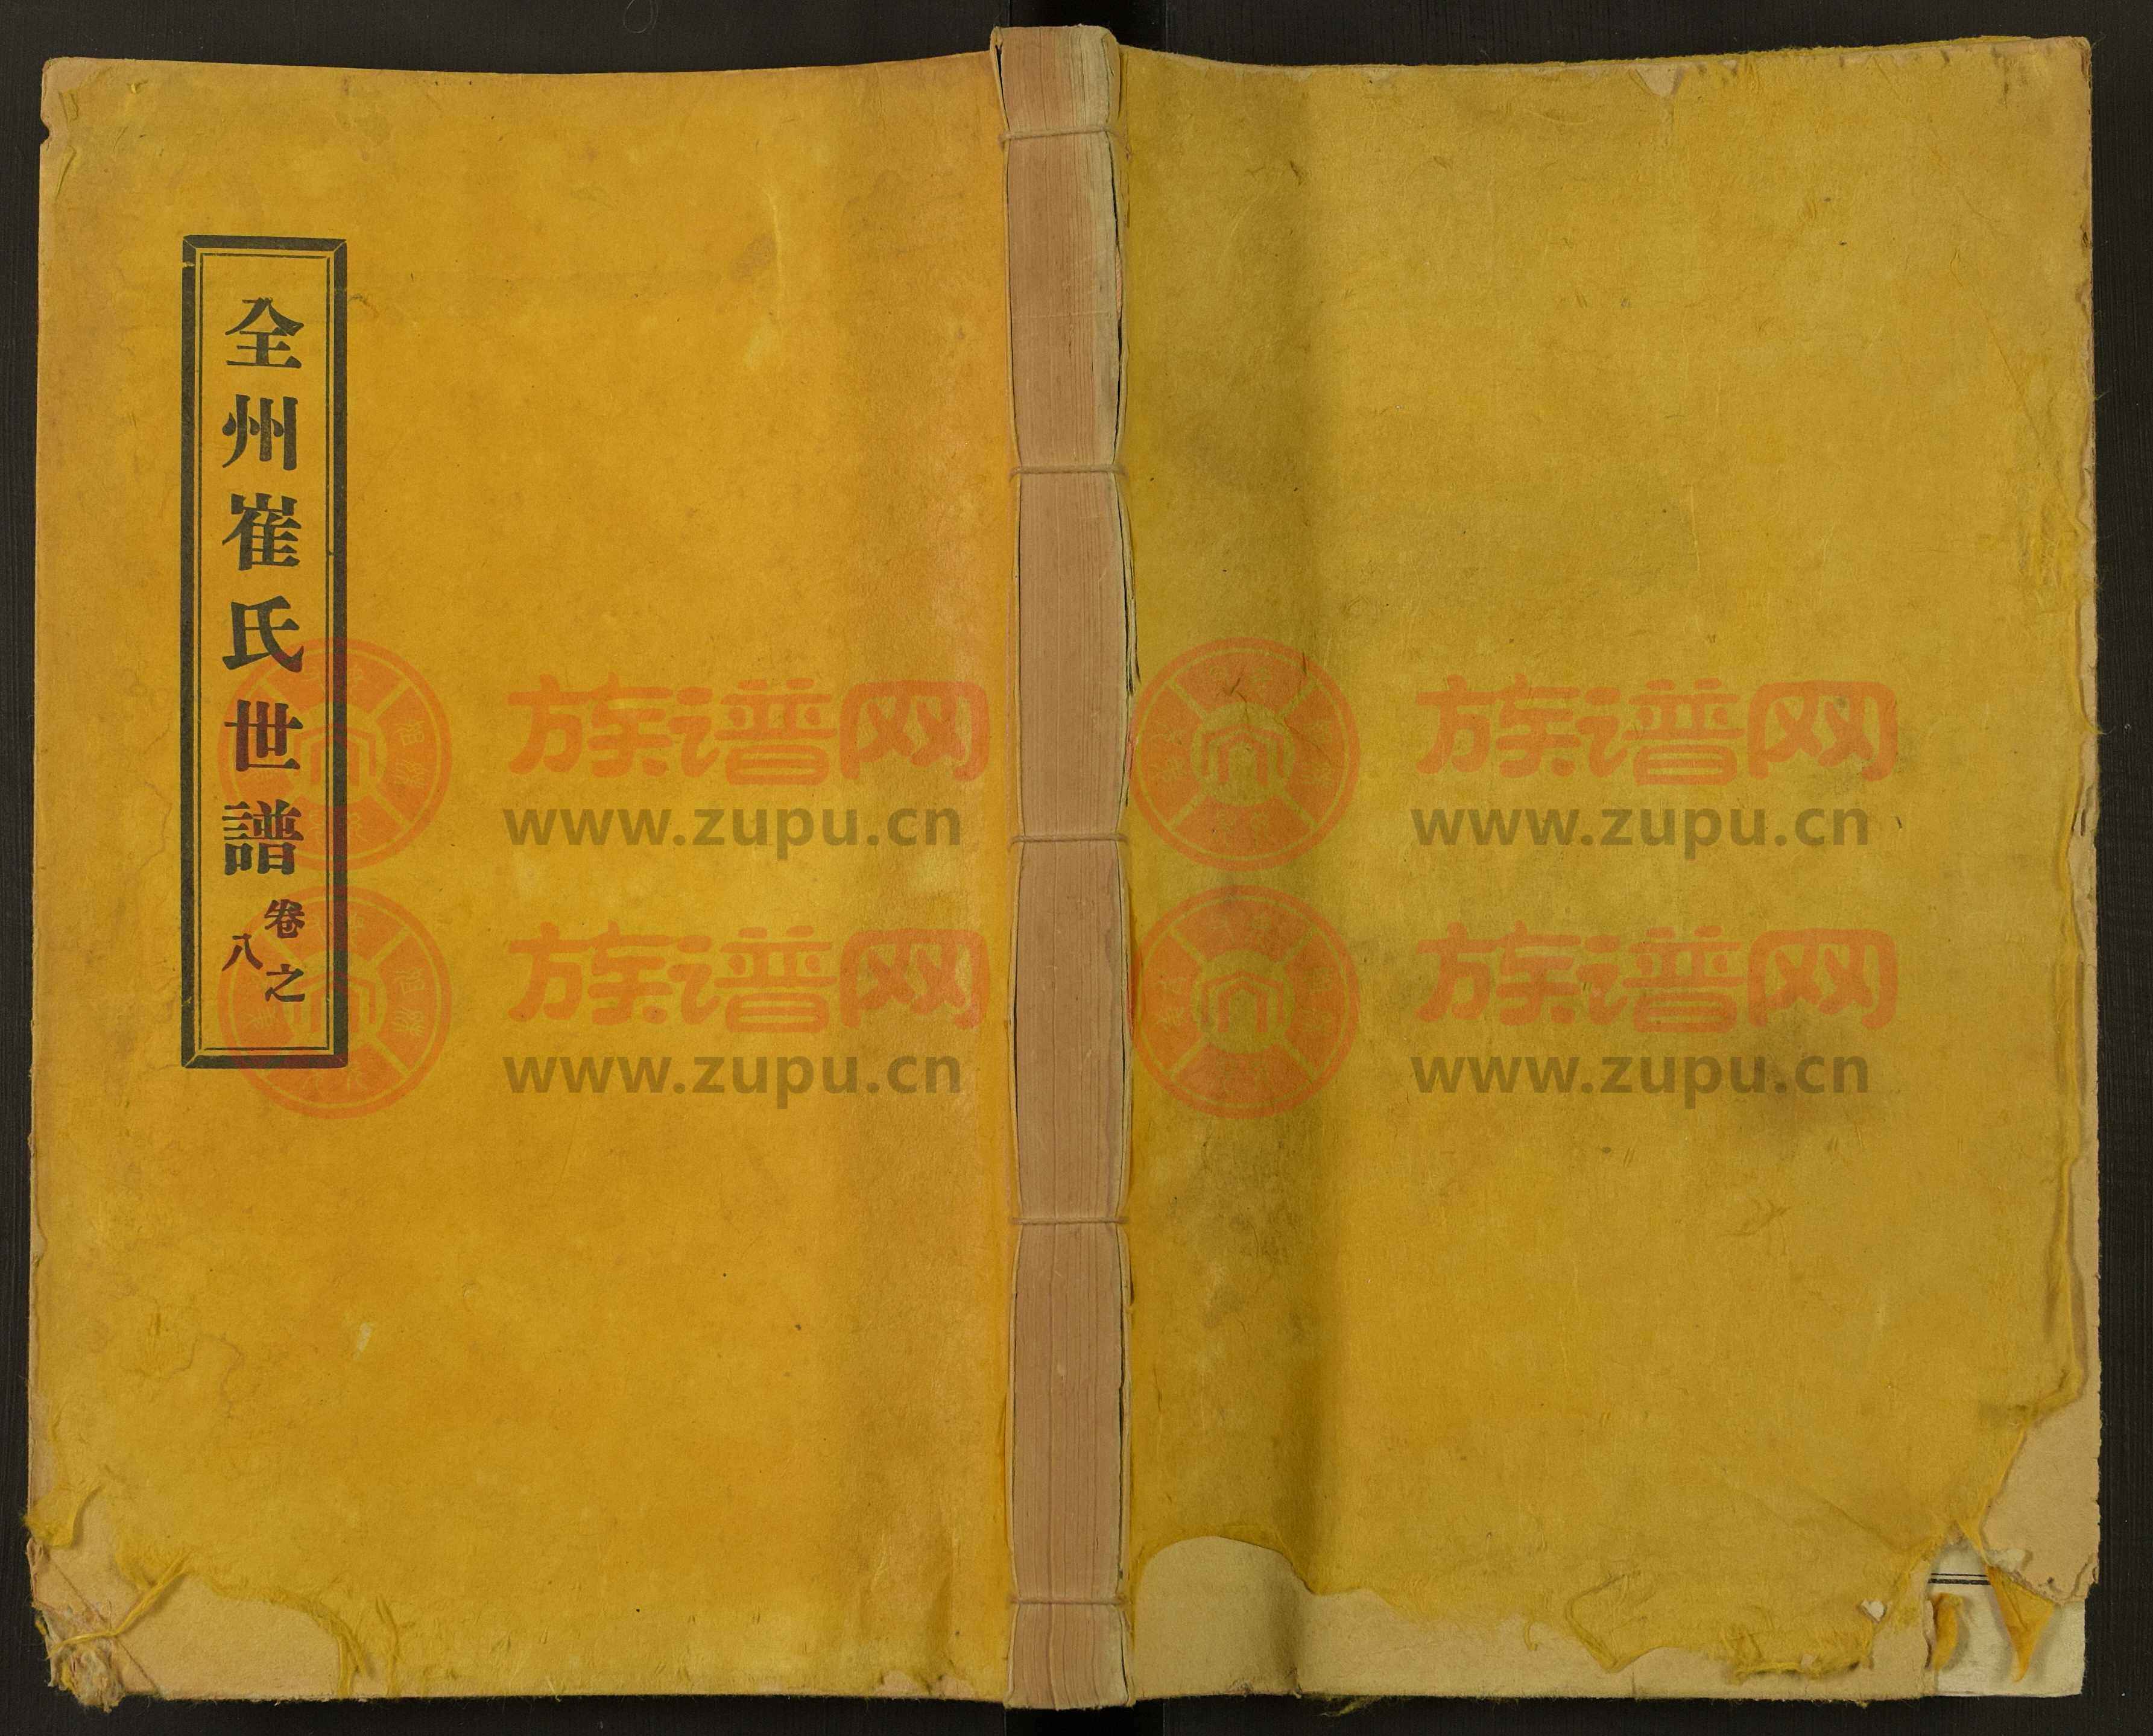 全州崔氏世譜
卷之
八
族谱网
www.zupu.cn
族谱网
www.zupu.cn
族谱网
www.zupu.cn
族谱网
www.zupu.cn